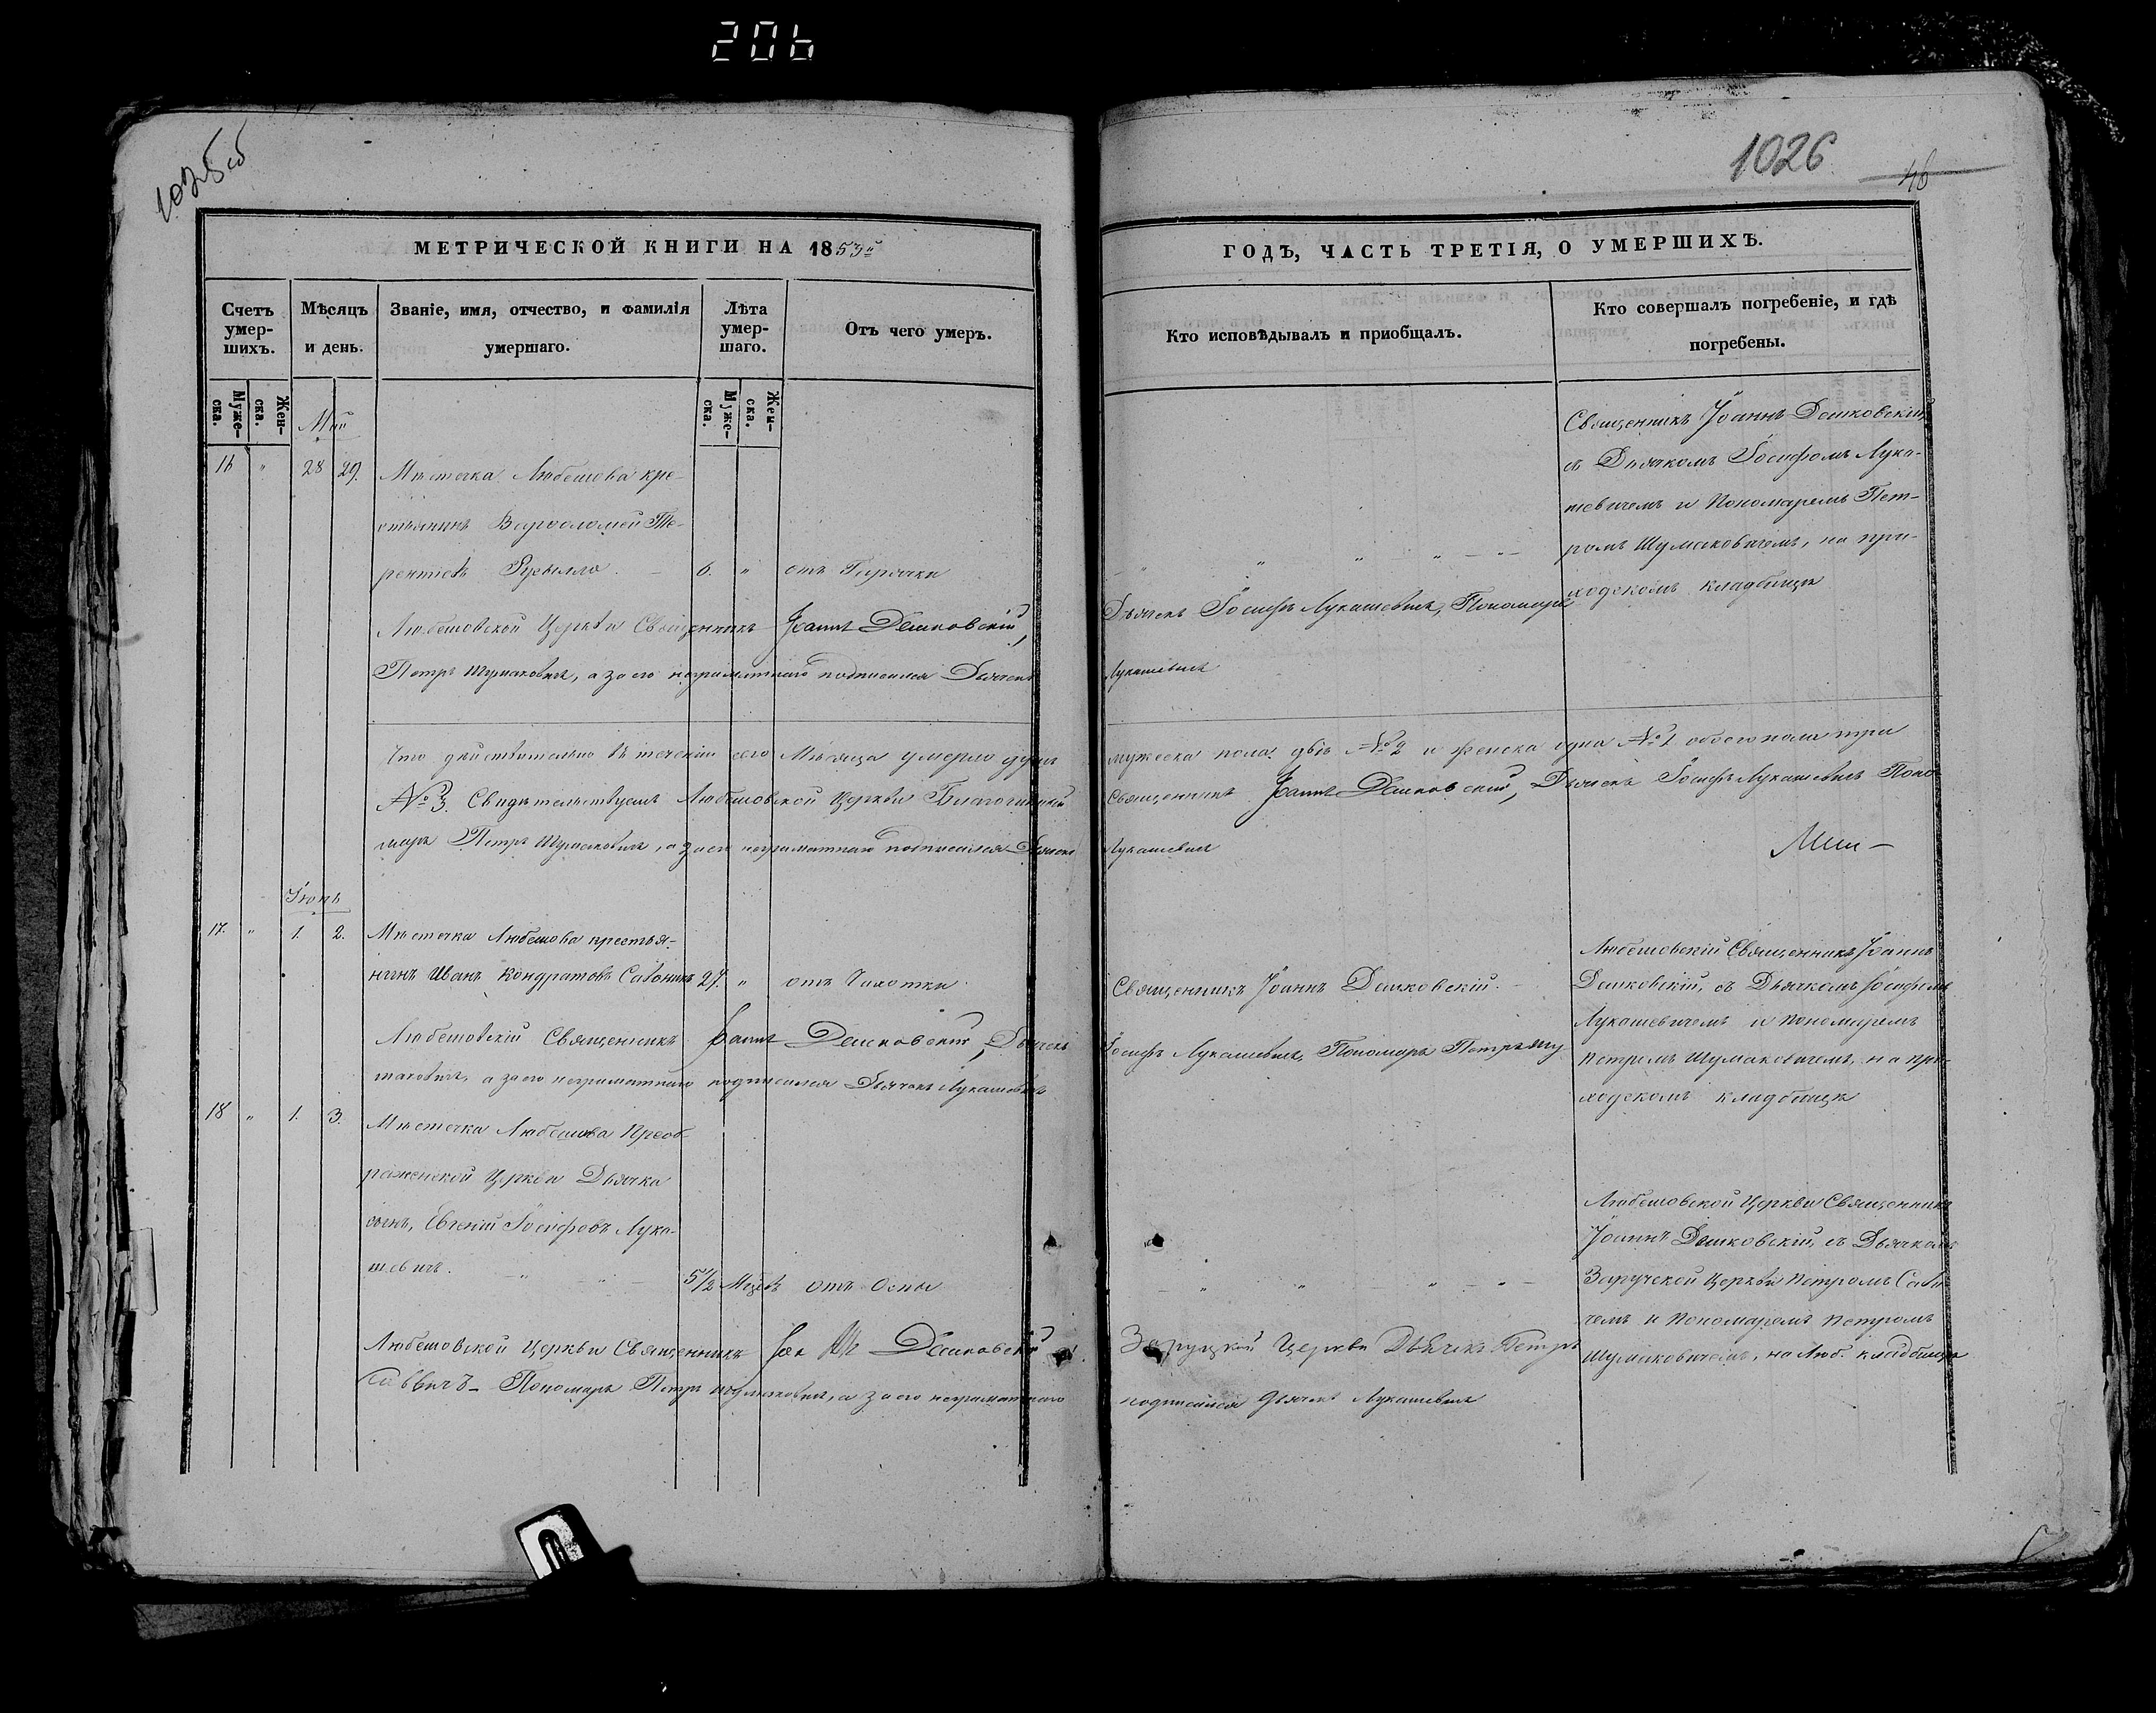 206
1025об
1026
46
МЕТРИЧЕСКОЙ КНИГИ НА 1853й
ГОДЪ, ЧАСТЬ ТРЕТІЯ, О УМЕРШИХЪ.
Счетъ умер-шихъ.
Мѣсяцъ и день.
Званіе, имя, отчество, и фамилія умершаго.
Лѣта умер-шаго.
Отъ чего умеръ.
Кто исповѣдывалъ и приобщалъ.
Кто совершалъ погребеніе, и гдѣ погребены.
Муже-ска.
Жен-ска.
Муже-ска.
Жен-ска.
Май
16 " 28 29. Мѣстечка Любешова кре-
стьянинъ Варфоломей Те-
рентіевъ – 6. " отъ Горячки
Священникъ Іоаннъ Дешковскій,
съ Дьячкомъ Іосифомъ Лука-
шевичемъ и Пономаремъ Пет-
ромъ Шумаковичемъ, на при-
ходскомъ кладбищѣ
Любешовской Церкви Священникъ Іоаннъ Дешковскій, Дьячекъ Іосифъ Лукашевичъ, Пономарь
Петръ Шумаковичъ, а за его неграматнаго подписался Дьячекъ Лукашевичъ
Что дѣйствительно въ теченіи сего Мѣсяца умерло душъ мужеска пола двѣ №2 и женска одна №1 обоего пола три
№3. Свидѣтельствуемъ Любешовской Церкви Священникъ Іоаннъ Дешковскій, Дьячекъ Іосифъ Лукашевичъ Поно-
марь Петръ Шумаковичъ, а за его неграматнаго подписался Дьячекъ Лукашевичъ
Іюнь
17. " 1. 2. Мѣстечка Любешова крестья-
нинъ Иванъ Кондратовъ Савоникъ 27. " отъ Чахотки
Священникъ Іоаннъ Дешковскій. –
Любешовскій Священникъ Іоаннъ
Дешковскій, съ Дьячкомъ Іосифомъ
Лукашевичемъ и Пономаремъ
Петромъ Шумаковичемъ, на при-
ходскомъ кладбищѣ
Любешовскій Священникъ Іоаннъ Дешковскій, Дьячекъ Іосифъ Лукашевичъ, Пономарь Петръ Шу
маковичъ, а за его неграматнаго подписался Дьячекъ Лукашевичъ
18 " 1. 3. Мѣстечка Любешова Преоб-
раженской Церкви Дьячка
сынъ, Евгеній Іосифовъ Лука-
шевичъ. 5 1/2 Мѣсев отъ Оспы
Любешовской Церкви Священникъ
Іоаннъ Дешковскій, съ Дьячкомъ
Заруцкой Церкви Петромъ Сави-
чемъ и Пономаремъ Петромъ
Шумаковичемъ, на Люб. кладбищѣ
Любешовской Церкви Священникъ Дешковскій Заруцкой Церкви Дьячекъ Петръ
Саввичъ – Пономарь Петръ Шумаковичъ, а за его неграматнаго подписался Дьячекъ Лукашевичъ